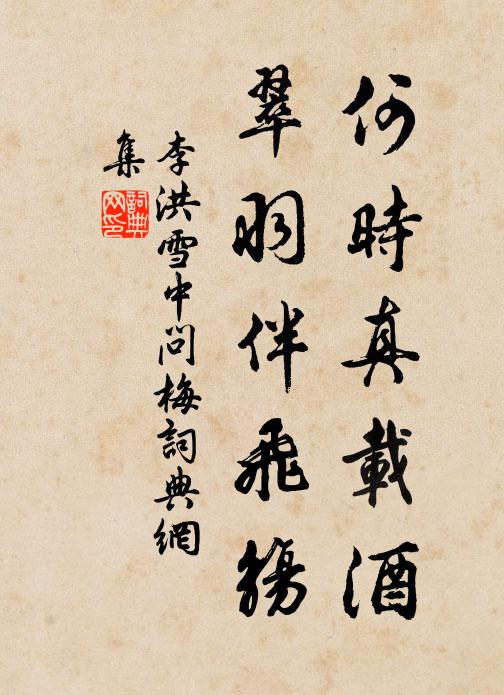 何時真載酒
翠羽伴飛觴
李洪雪中問梅詞典網
集
詞典網印